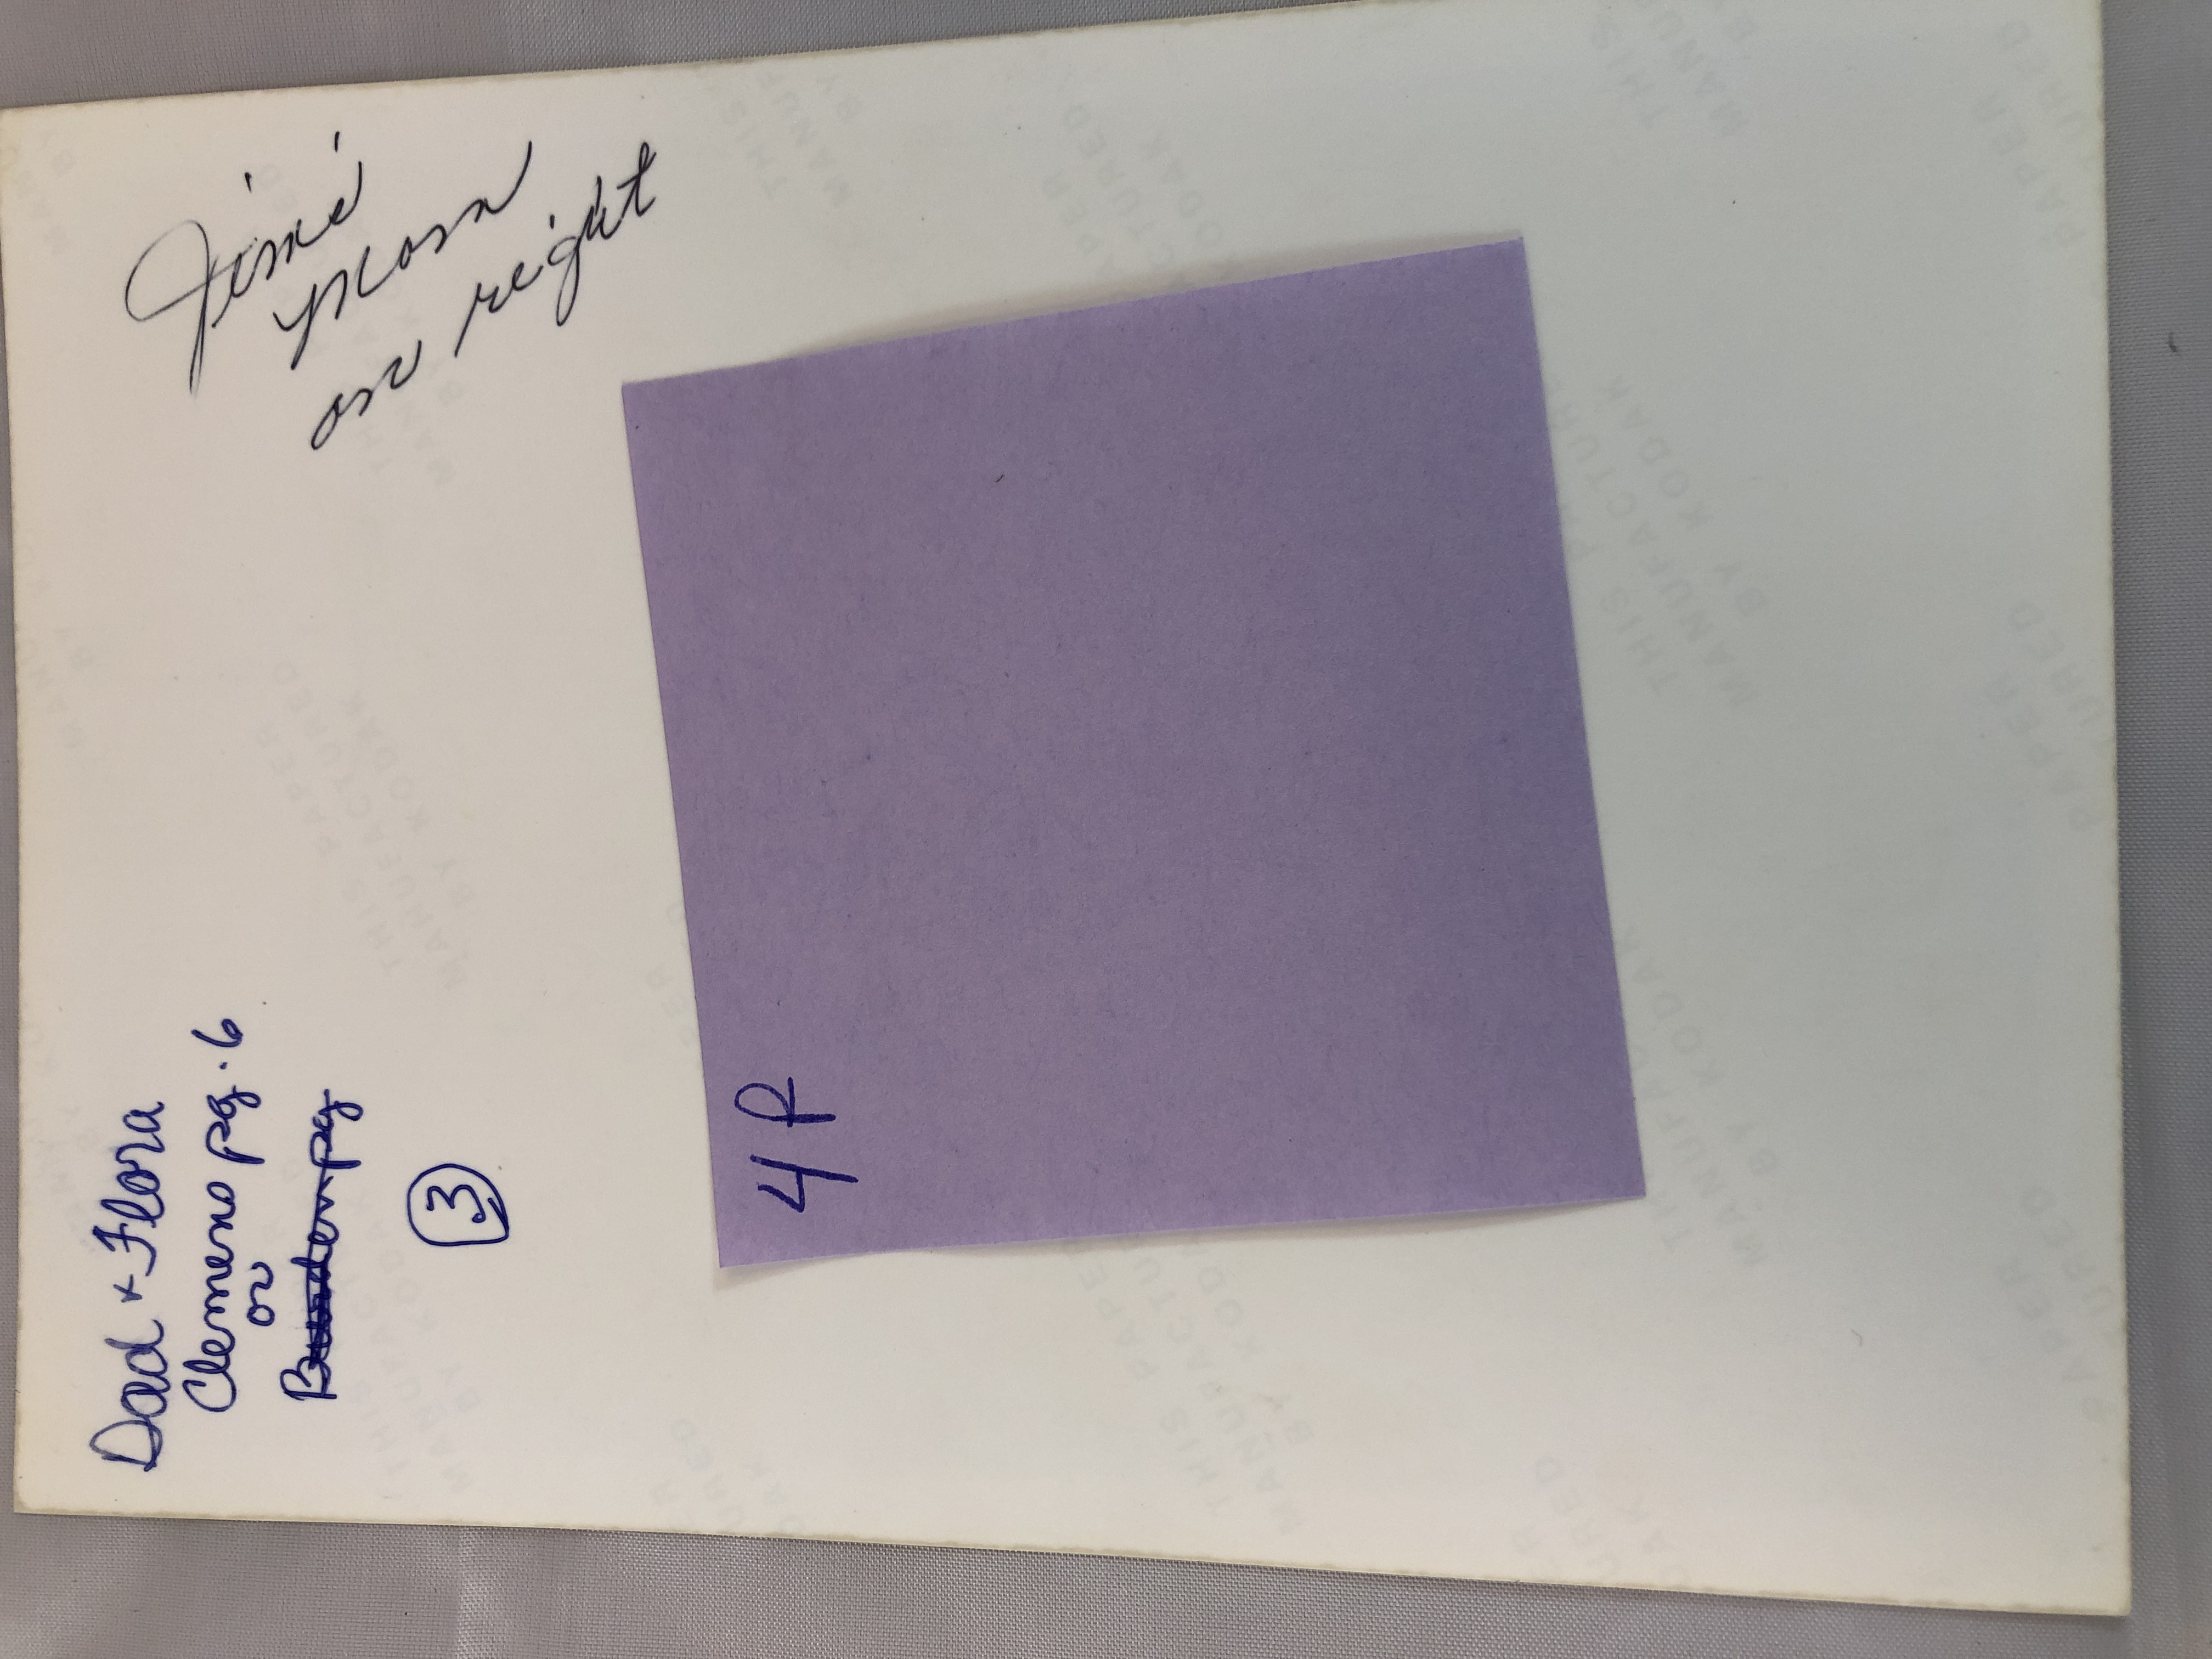 Dad + Flora
Clemens pg. 6
or
Burden pg
3
Jimé
Mom
on right
4 R
THIS PAPER
MANUFACTURED
BY KODAK